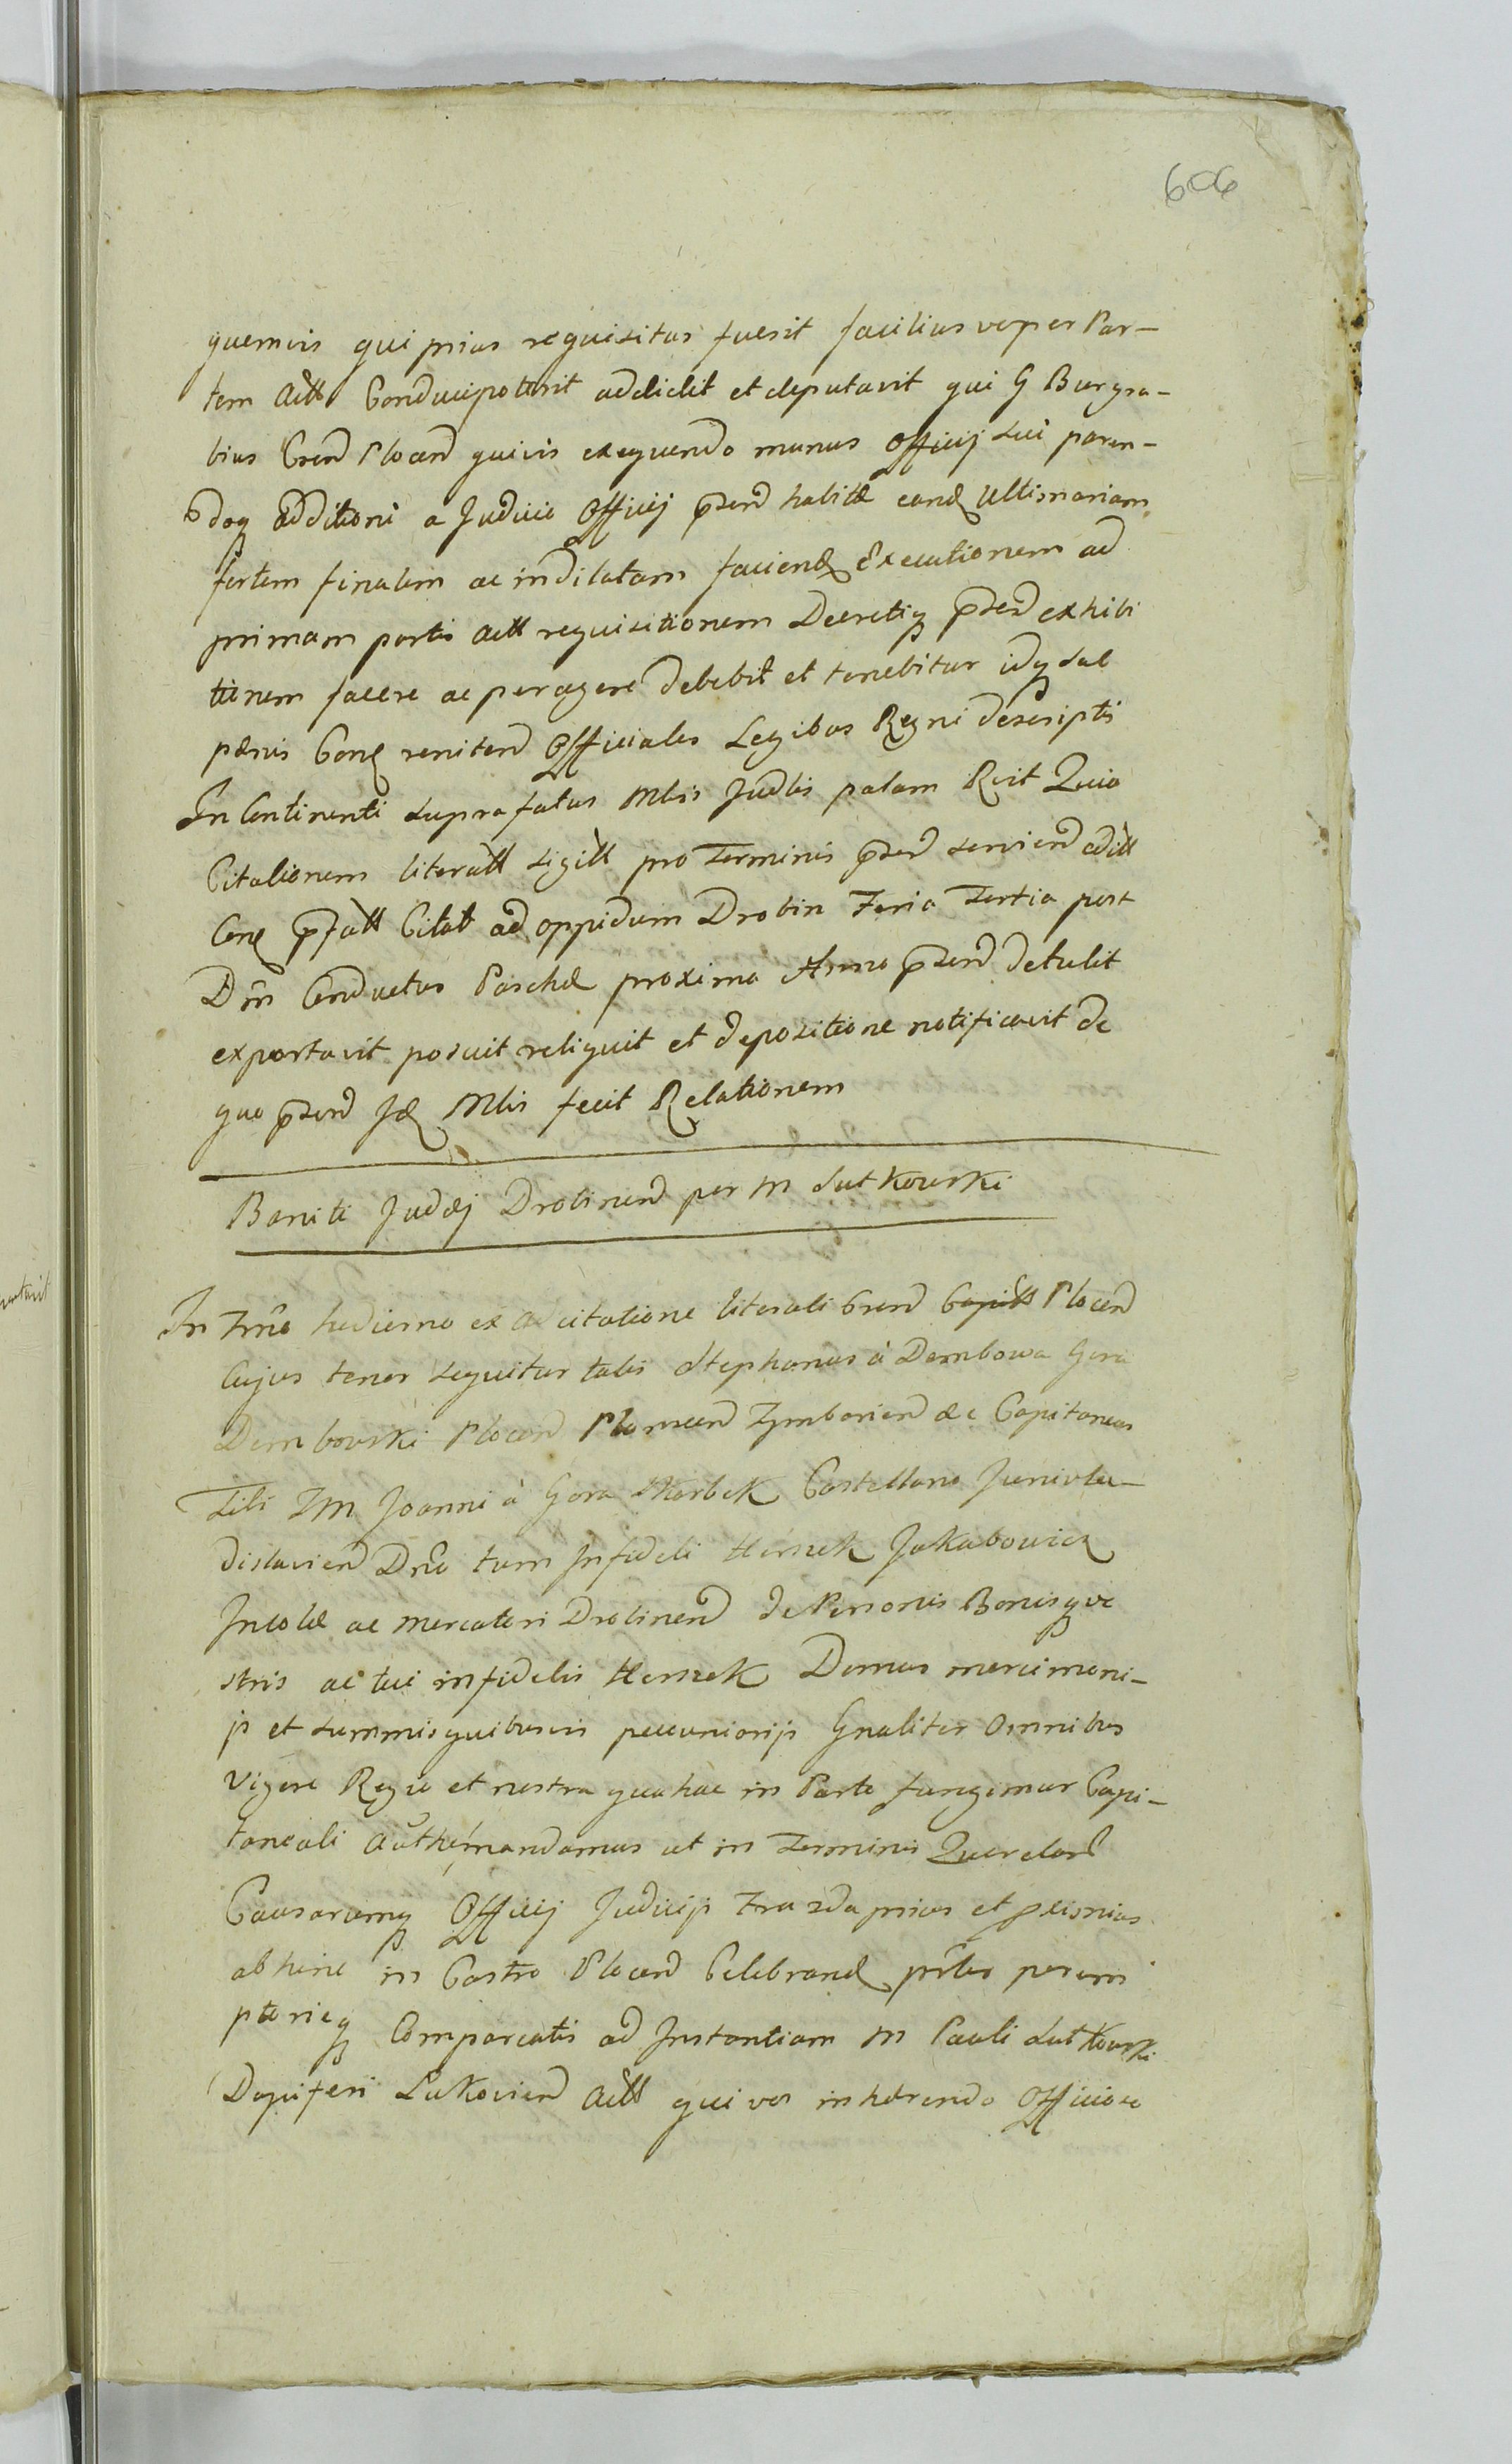 606
quemvis qui prius requisitus fuerit facilius ve per Par-
tem Actt Conduci poterit addidit et deputavit qui G Burgra-
bius Cren Plocen quivis exequendo munus Officij sui paren-
doq additioni a Judicio Officij pnsen habitæ eand Ultimariam
fortem finalem ac indilatam faciend Executionem ad
primam partis Actt requisitionem Decretiq pnsen exhibi
tionem facere ac peragere debebit et tenebitur idq sub
pœnis Con reniten Officiales Legibus Regni descriptis
In Continenti supra fatus Mlis Judlis palam Rcit Quia
Citationem literatt sigitt pro Terminis pnsen servien editt
Con pfatt Citat ad oppidum Drobin Feria Tertia post
Dm Conductus Paschæ proxima Anno pnsen detulit
exportavit posuit reliquit et depositione notificavit de
quo pnsen Jd Mlis fecit Relationem
Baniti Judæj Drobinen per M Sutkowski
In Tmo hodierno ex citatione literali Cren Capitt Plocen
Cujus tenor sequitur talis Stephanus à Dembowa Gora
Dembowski Plocen Plonscen Tymbarien &c Capitaneus
Tibi IM Joanni à Gora Skarbek Castellano Junivla-
dislavien Dno tum Infideli Herszek Jakubowicz
Incolæ ac Mercatori Drobinen de Personis Bonisq ve
stris ac tui infidelis Herszek Domus mercimoni-
js et summis quibusvis pecuniarijs Gnaliter Omnibus
Vigore Regia et nostra qua hac in Parte fungimur Capi-
taneali Authe mandamus ut in Terminis Querelar
Causarumq Officij Judicijs Fra 2da prius et pximius
abhinc in Castro Plocen Celebrand prlr perem
ptorieq Compareatis ad Instantiam M Pauli Sutkowski
Dapiferi Lukovien Actt qui vos inhærendo Officiose